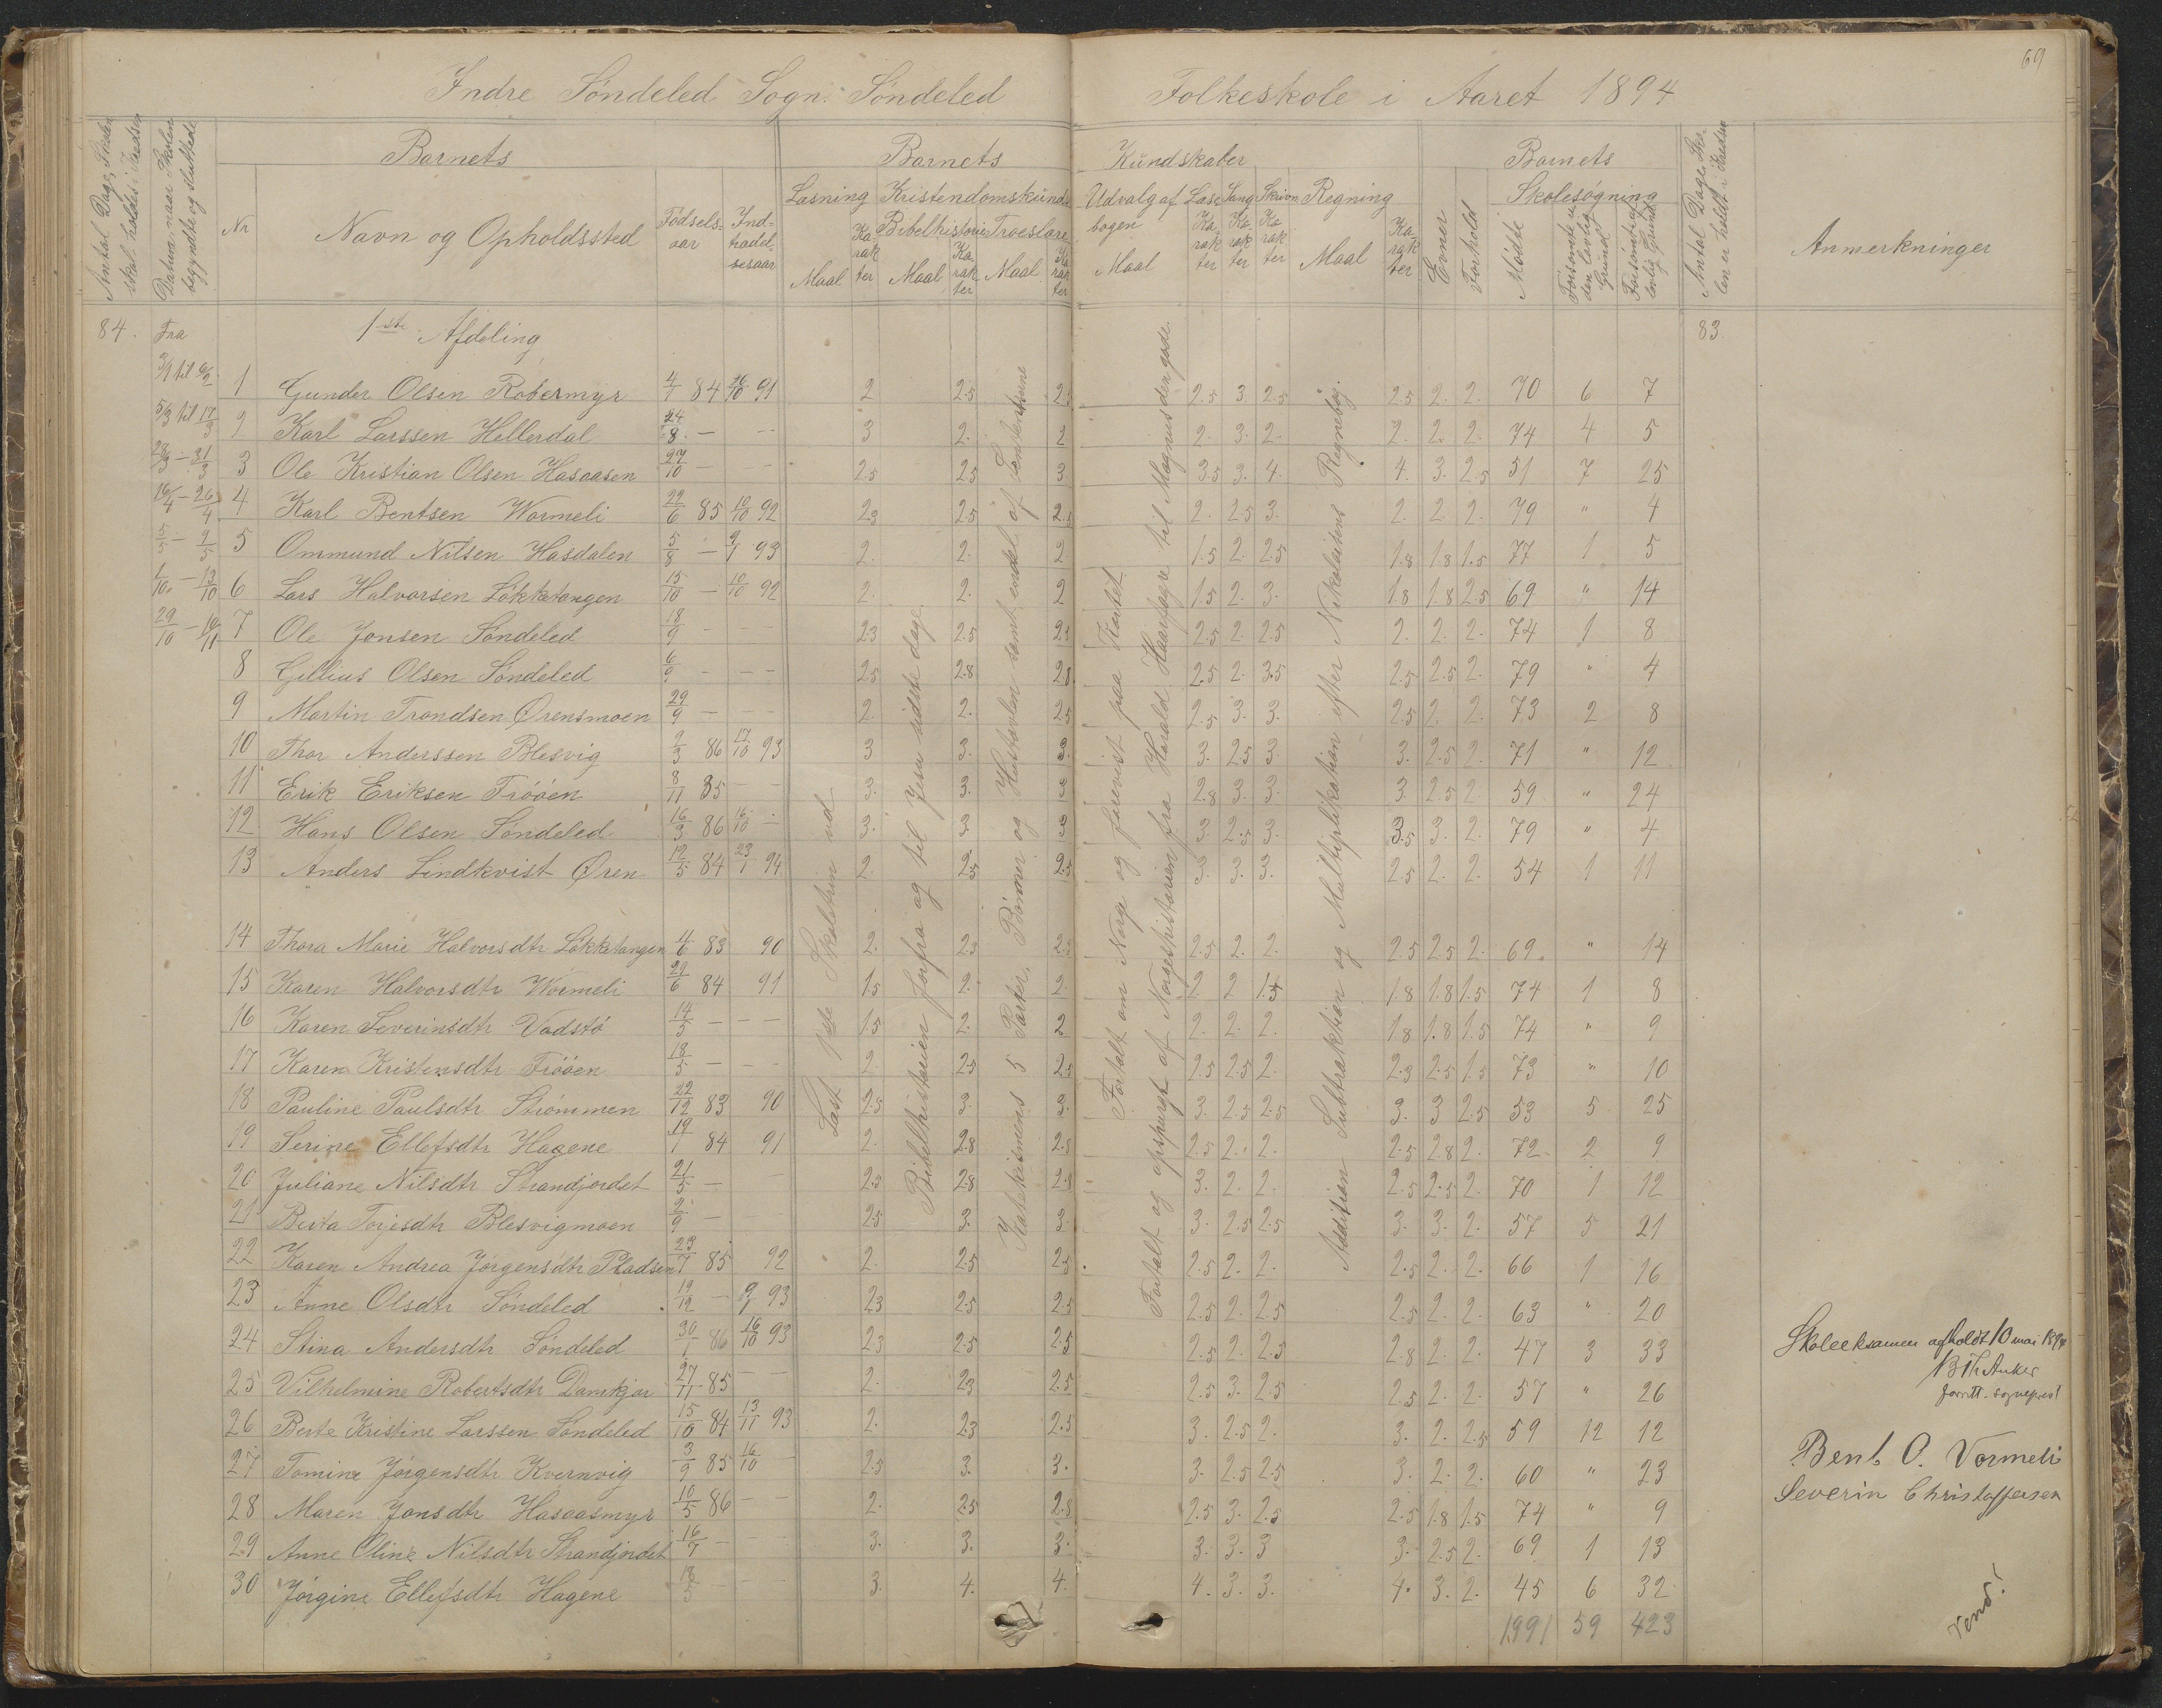 69
Indre Söndeled Sogn. Söndeled Folkeskole i Aaret 1894
Antal Dage, Skolen skal holdes i Kredsen
Datum, naar Skolen begyndte og sluttede
Barnets
Nr
Navn og Opholdssted
Födsels-aar
Ind-trædel-sesaar
Barnets Kundskaber
Læsning
Maal
Ka-rak-ter
Kristendomskunds.
Bibelhistorie
Maal
Ka-rak-ter
Troeslære
Maal
Ka-rak-ter
Udvalg af Læse-bogen
Maal
Ka-rak-ter
Sang
Ka-rak-ter
Skrivn
Ka-rak-ter
Regning
Maal
Ka-rak-ter
Evner
Forhold
Barnets
Skolesögning
Mödte
Forsömte u-den lovlig Grund
Forsömte af lovlig Grund
Antal Dage, Sko-len er holdt i Kredsen
Anmerkninger
84. Fra 1ste Afdeling 83.
3/1 til 6/2 1 Gunder Olsen Robermyr 4/7 84 26/10 91 2 2.5 2.5 2.5 3. 2.5 2.5 2. 2. 70 6 7
5/3 til 17/3 2 Karl Larssen Hellerdal 24/8 - -- 3 2. 2 2. 3. 2. 2. 2. 2. 74 4 5
28/3 - 31/3 3 Ole Kristian Olsen Hasaasen 27/10 - -- 2.5 2.5 3. 3.5 3. 4. 4. 3. 2.5 51 7 25
16/4 - 26/4 4 Karl Bentsen Wormeli 22/6 85 10/10 92 2.3 2.5 2.5 2. 2.5 3. 2. 2. 2. 79 " 4
5/5 - 9/5 5 Ommund Nilsen Hasdalen 5/8 - 9/1 93 2. 2. 2 1.5 2. 2.5 1.8 1.8 1.5 77 1 5
1/10. - 13/10 6 Lars Halvorsen Lökketangen 15/10 - 10/10 92 2. 2. 2 1.5 2. 3. 1.8 1.8 2.5 69 " 14
29/10 - 10/11 7 Ole Jonsen Söndeled 18/9 - -- 2.3 2.5 2.5 2.5 2. 2.5 2. 2. 2. 74 1 8
8 Gillius Olsen Söndeled 6/9 - -- 2.5 2.8 2.8 2.5 2. 3.5 2.5 2.5 2. 79 " 4
9 Martin Trondsen Ørensmoen 29/9 - -- 2. 2. 2.5 2.5 3. 3. 2.5 2 2. 73 2 8
10 Thor Anderssen Blesvig 9/3 86 17/10 93 3 3. 3. 3. 2.5 3. 3. 2.5 2. 71 " 12
11 Erik Eriksen Fröóen 8/11 85 -- 3. 3. 3 2.8 3. 3. 3 2.5 2 59 " 24
12 Hans Olsen Söndeled 16/3 86 16/10 - 3. 3 3 3. 2.5 3. 3.5 3. 2. 79 " 4
13 Anders Lindkvist Øren 12/5 84 23/1 94 2. 2.5 2.5 3. 3. 3. 2.5 2. 2. 54 1 11
14 Thora Marie Halvorsdtr Lökketangen 4/6 83 90 2. 2.3 2.5 2.5 2. 2. 2.5 2.5 2. 69. " 14
15 Karen Halvorsdtr Wormeli 29/6 84 91 1.5 2. 2. 2 2 1.5 1.8 1.8 1.5 74 1 8
16 Karen Severinsdtr Vadstö 14/5 - -- 1.5 2. 2 2. 2. 2. 1.8 1.8 1.5 74 " 9
17 Karen Kristensdtr Fröóen 18/5 - -- 2. 2.5 2.5 2.5 2.5 2. 2.3 2.5 1.5 73 " 10
18 Pauline Paulsdtr Strömmen 22/12 83 90 2.5 3. 3. 3. 2.5 2.5 3. 3 2.5 53 5 25
19 Serine Ellefsdtr Hagene 19/1 84 91 2. 2.8 2.8 2.5 2. 2. 2.5 2.8 2. 72 2 9
20 Juliane Nilsdtr Strandjordet 21/5 - -- 2.5 2.8 2.5 3. 2. 2. 2.5 2.5 2. 70 1 12
21 Berta Torjesdtr Blesvigmoen 2/9 - -- 2.5 3. 3. 3. 2.5 2.5 3. 3. 2. 57 5 21
22 Karen Andrea Jörgensdtr Pladsen 23/4 85 92 2. 2.5 2.5 2.5 2. 2. 2.5 2. 2. 66 1 16
23 Anne Olsdtr Söndeled 19/12 - 9/1 93 2.3 2.5 2.5 2.5 2. 2.5 2.5 2. 2. 63 " 20
24 Stina Andersdtr Söndeled 30/1 86 16/10 93 2.3 2.5 2.5 2.5 2. 2.5 2.8 2. 2. 47 3 33
25 Vilhelmine Robertsdtr Damkjær 27/11 85 -- 2. 2.3 2.5 2.5 3. 2.5 2.5 2. 2. 57 " 26
26 Berte Kristine Larssen Söndeled 15/10 84 13/11 93 2. 2.3 2.5 3. 2.5 2. 3. 2. 2.5 59 12 12
27 Tomine Jörgensdtr Kvernvig 3/9 85 16/10 - 2.5 3. 3. 3. 2.5 2.5 3. 2. 2. 60 " 23
28 Maren Jonsdtr Hasaasmyr 10/5 86 -- 2. 2.5 2.8 2.5 3. 2.5 2.5 1.8 1.5 74 " 9
29 Anne Oline Nilsdtr Strandjordet 16/7 - -- 3. 3. 3. 3. 3. 3 3. 2.5 2. 69 1 13
30 Jörgine Ellefsdtr Hagene 18/5 - -- 3. 4. 4. 4. 3. 3. 4. 3. 2. 45 6 32
1991 59 423
Læst 1ste Skoletrin ud
Bibelhistorien forfra og til Jesu sidste dage
Katekismens 5 Parter, Bönner og Hustavlen samt endel af
Fortalt om Norge og paavist paa Kartet
Fortalt og opspurgt af Norgeshistorien fra Harald Haarfagre til Magnus den gode.
Addition Subtraktion og Multiplikation efter Nikolaisens Regnebog.
Skoleeksamen afholdt 10 mai 1894
B Th Anker
Bent O. Vormeli
Severin Christoffersen
Vend!